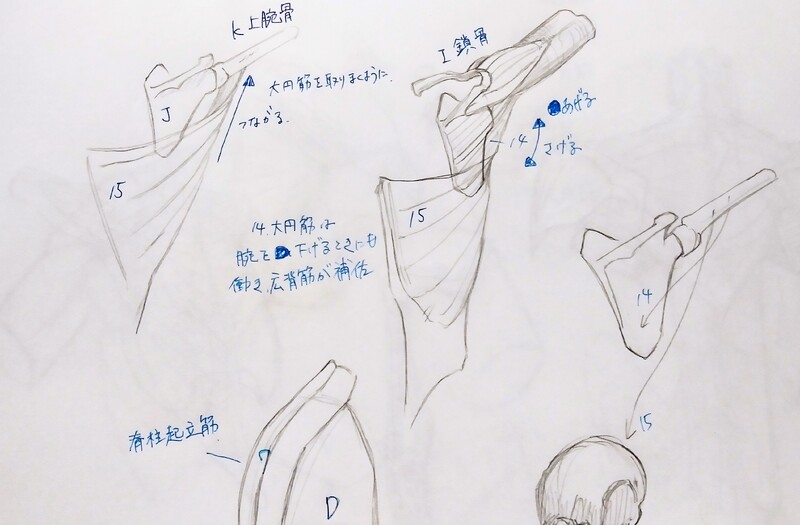 K 上腕骨
J
大円筋を取りまくように
つながる.
15
I 鎖骨
あげる
14
さげる
15
14. 大円筋は
腕を下げるときにも
働き、広背筋が補佐
14
15
脊柱起立筋
7
D